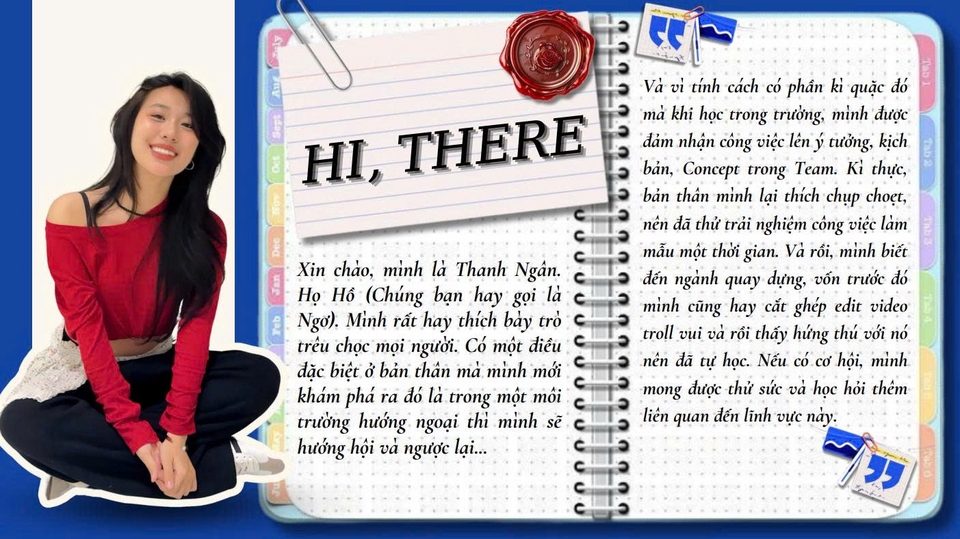 HI, THERE
Xin chào, mình là Thanh Ngân.
Họ Hồ (Chúng bạn hay gọi là
Ngơ). Mình rất hay thích bày trò
trêu chọc mọi người. Có một điều
đặc biệt ở bản thân mà mình mới
khám phá ra đó là trong một môi
trường hướng ngoại thì mình sẽ
hướng hội và ngược lại...
Và vì tính cách có phần kì quặc đó
mà khi học trong trường, mình được
đảm nhận công việc lên ý tưởng, kịch
bản, Concept trong Team. Kì thực,
bản thân mình lại thích chụp choẹt,
nên đã thử trải nghiệm công việc làm
mẫu một thời gian. Và rồi, mình biết
đến ngành quay dựng, vốn trước đó
mình cũng hay cắt ghép edit video
troll vui và rồi thấy hứng thú với nó
nên đã tự học. Nếu có cơ hội, mình
mong được thử sức và học hỏi thêm
liên quan đến lĩnh vực này.
July
Aug
Sept
Oct
Nov
Dec
Jan
Feb
Tab 1
Tab 2
Tab 3
Tab 4
Tab 5
Tab 6